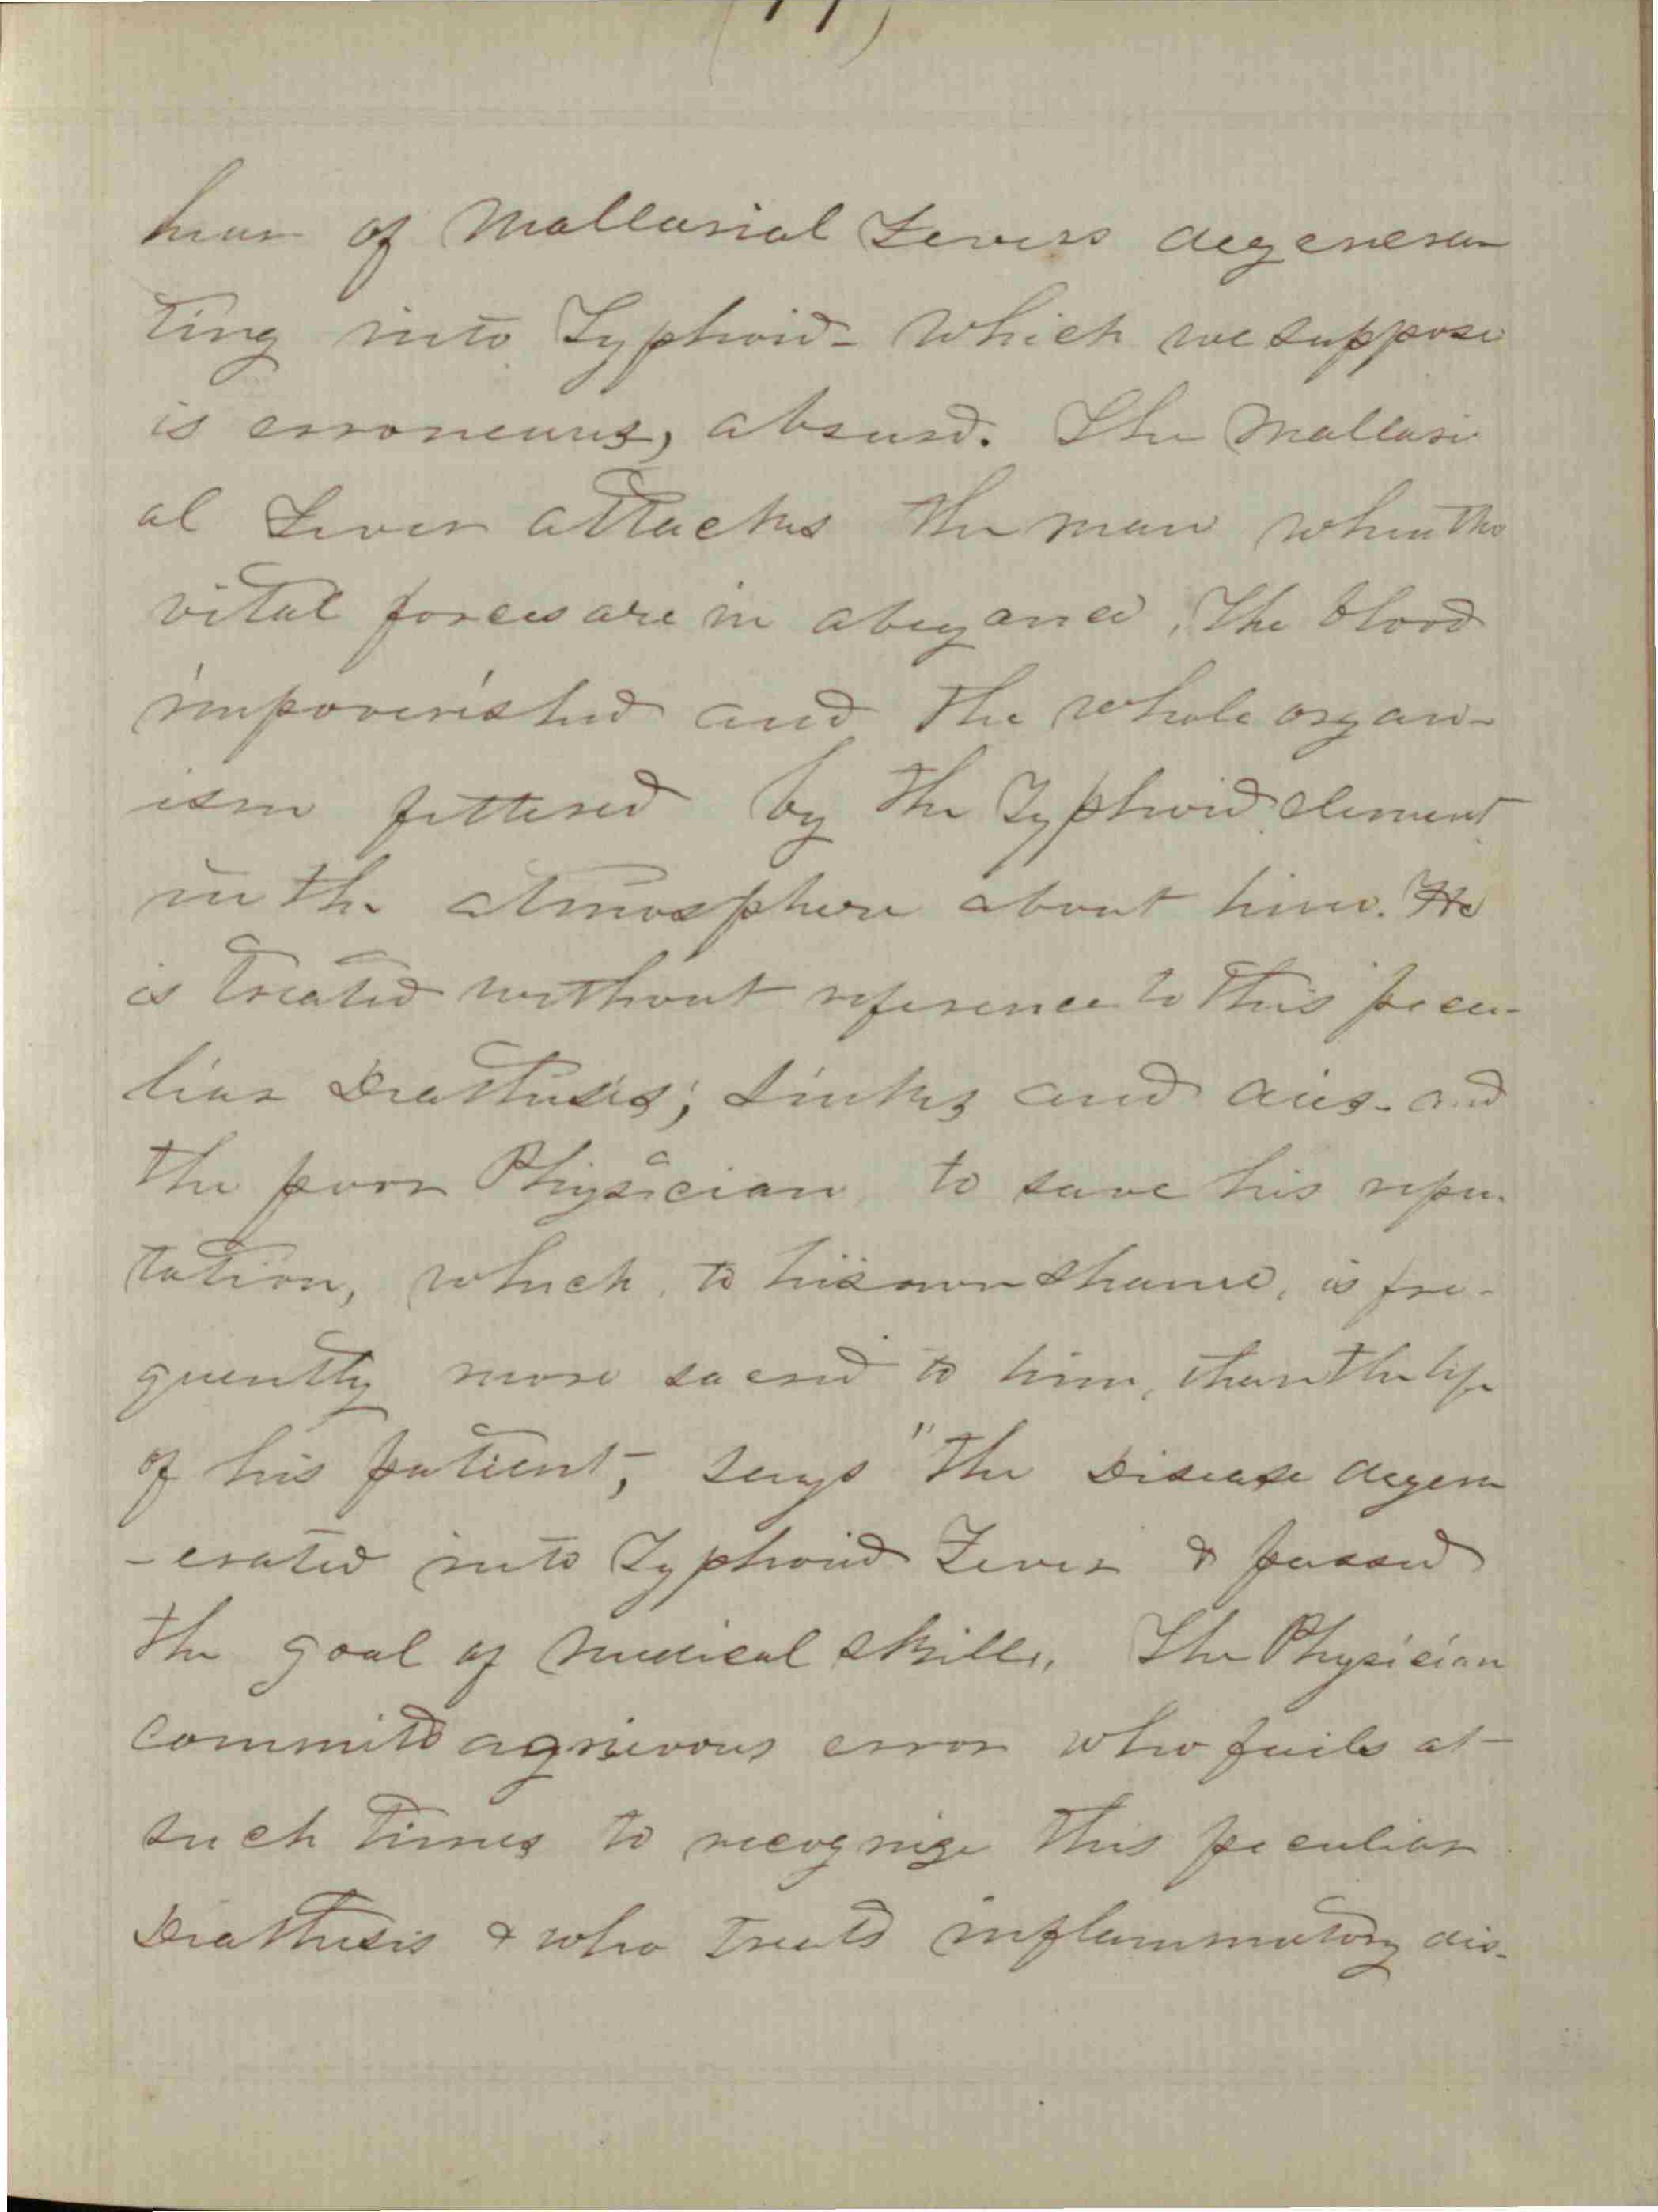 hear of Mallarial Fevers degenera
ting into Typhoid - which we suppose
is erroneous, absurd. The Mallari
al Fever attacks the man when the
vital forces are in abeyance, The blood
impoverished and the whole organ-
ism fettered by the Typhoid element
in the atmosphere about him. He
is treated without reference to this pecu-
liar Diathesis; sinks and dies - and
the poor Physician, to save his repu-
tation, which, to his own shame, is fre-
quently more sacred to him, than the life
of his patient, says "the Disease degen
-erated into Typhoid Fever & passed
the goal of Medical skill". The Physician
commits a grievous error who fails at
such times to recognize this peculiar
Diathesis & who treats inflammatory dis-